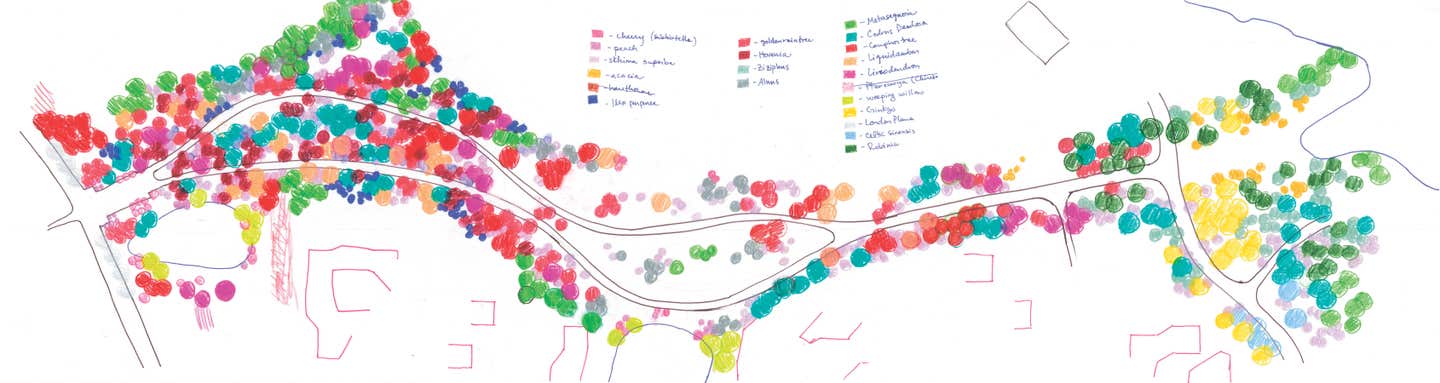 - cherry
- peach
- schima superba
- acacia
- hawthorne
- Ilex purpurea
- goldenraintree
- Hovenia
- Ziziphus
- Alnus
- Metasequoia
- Cedrus Deodora
- Camphor tree
- Liquidambar
- Liriodendron
- weeping willow
- Ginkgo
- London Plane
- celtis sinensis
- Robinia